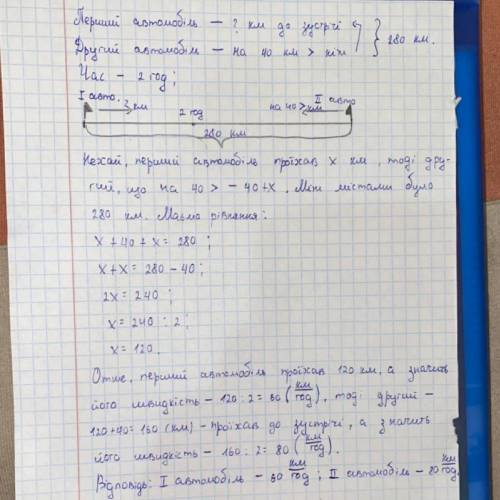 Перший автомобіль — ? км до зустрічі } 280 км.
Другий автомобіль — на 40 км > ніж
Час — 2 год;
I авто. ? км 2 год на 40 > км II авто
280 км
Нехай, перший автомобіль проїхав x км, тоді дру-
гий, що на 40 > — 40+x. Між містами було
280 км. Маємо рівняння:
x + 40 + x = 280;
x + x = 280 - 40;
2x = 240;
x = 240 : 2;
x = 120.
Отже, перший автомобіль проїхав 120 км, а значить
його швидкість — 120 : 2 = 60 (км/год), тоді другий —
120+40=160 (км) — проїхав до зустрічі, а значить
його швидкість — 160 : 2 = 80 (км/год).
Відповідь: I автомобіль — 60 км/год; II автомобіль — 80 км/год.